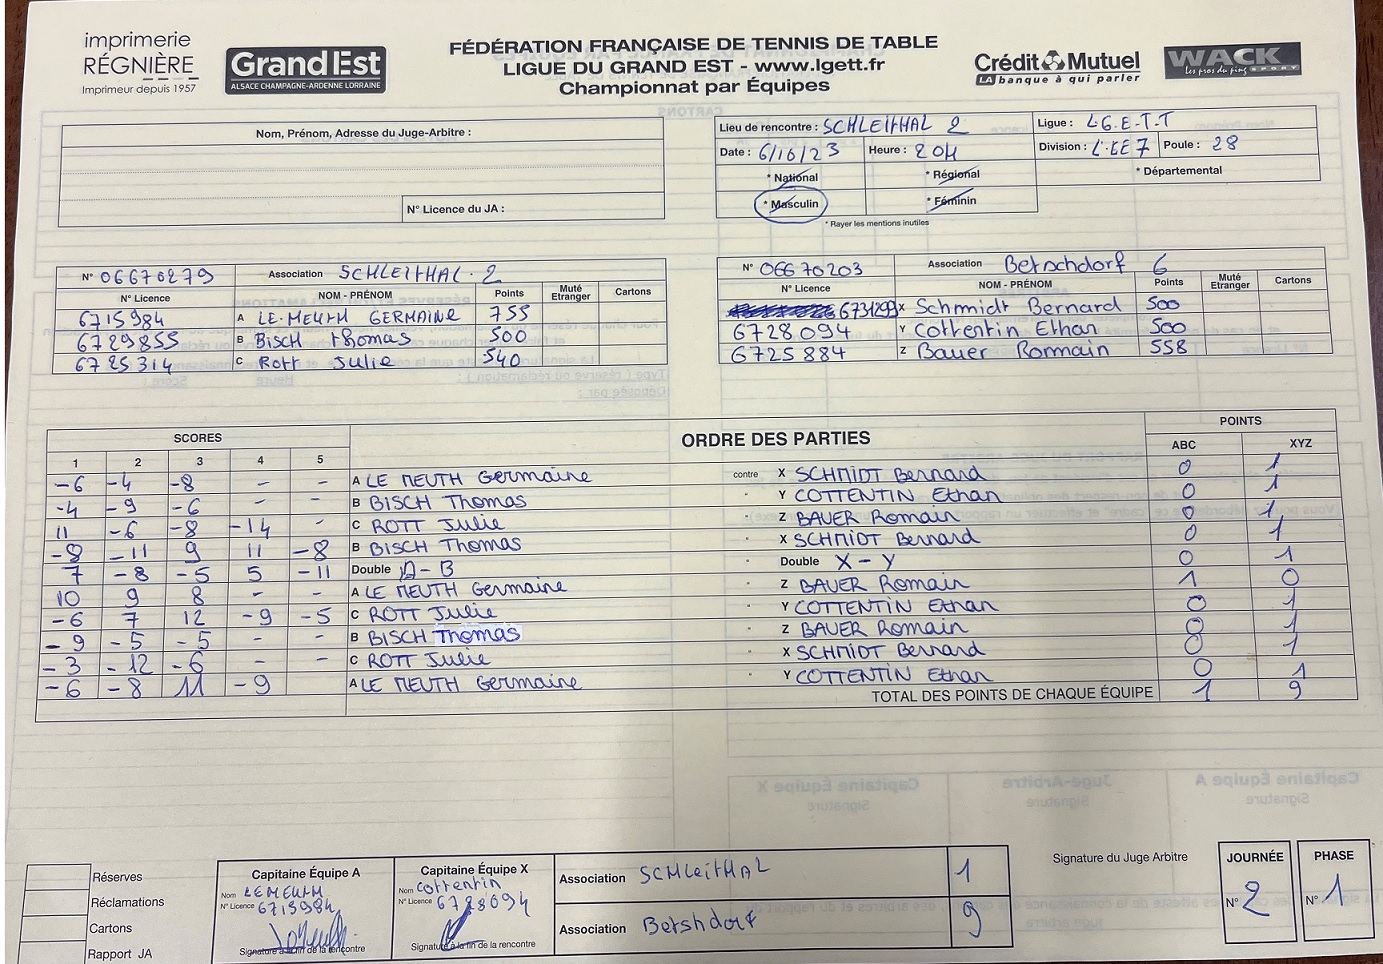 imprimerie
RÉGNIÈRE
Imprimeur depuis 1957
GrandEst
ALSACE CHAMPAGNE-ARDENNE LORRAINE
FÉDÉRATION FRANÇAISE DE TENNIS DE TABLE
LIGUE DU GRAND EST - www.lgett.fr
Championnat par Équipes
Crédit Mutuel
LA banque à qui parler
WACK
Les pros du ping SPORT
Nom, Prénom, Adresse du Juge-Arbitre :
N° Licence du JA :
Lieu de rencontre : SCHLEITHAL 2 Ligue : L.G.E.T.T
Date : 6/10/23 Heure : 20H Division : L.EE7 Poule : 28
* National * Régional * Départemental
* Masculin * Féminin
* Rayer les mentions inutiles
N° 06670279 Association SCHLEITHAL 2
N° Licence NOM - PRÉNOM Points Muté Etranger Cartons
6715984 A LE-MEUTH GERMAINE 755
6729855 B Bisch thomas 500
6725314 C Rott Julie 540
N° 06670203 Association Betschdorf 6
N° Licence NOM - PRÉNOM Points Muté Etranger Cartons
6731299 X Schmidt Bernard 500
6728094 Y Cottentin Ethan 500
6725884 Z Bauer Romain 558
SCORES ORDRE DES PARTIES POINTS
1 2 3 4 5 ABC XYZ
-6 -4 -8 - - A LE MEUTH Germaine contre X SCHMIDT Bernard 0 1
-4 -9 -6 - - B BISCH Thomas " Y COTTENTIN Ethan 0 1
11 -6 -8 -14 - C ROTT Julie " Z BAUER Romain 0 1
-8 -11 9 11 -8 B BISCH Thomas " X SCHMIDT Bernard 0 1
7 -8 -5 5 -11 Double A-B " Double X-Y 0 1
10 9 8 - - A LE MEUTH Germaine " Z BAUER Romain 1 0
-6 7 12 -9 -5 C ROTT Julie " Y COTTENTIN Ethan 0 1
-9 -5 -5 - - B BISCH Thomas " Z BAUER Romain 0 1
-3 -12 -6 - - C ROTT Julie " X SCHMIDT Bernard 0 1
-6 -8 11 -9 A LE MEUTH Germaine " Y COTTENTIN Ethan 0 1
TOTAL DES POINTS DE CHAQUE ÉQUIPE 1 9
Réserves
Réclamations
Cartons
Rapport JA
Capitaine Équipe A
Nom LEMEUTH
N° Licence 6715984
Signature à la fin de la rencontre
Capitaine Équipe X
Nom Cottentin
N° Licence 6728094
Signature à la fin de la rencontre
Association SCHLeitHAL 1
Association Betshdorf 9
Signature du Juge Arbitre
JOURNÉE
N° 2
PHASE
N° 1